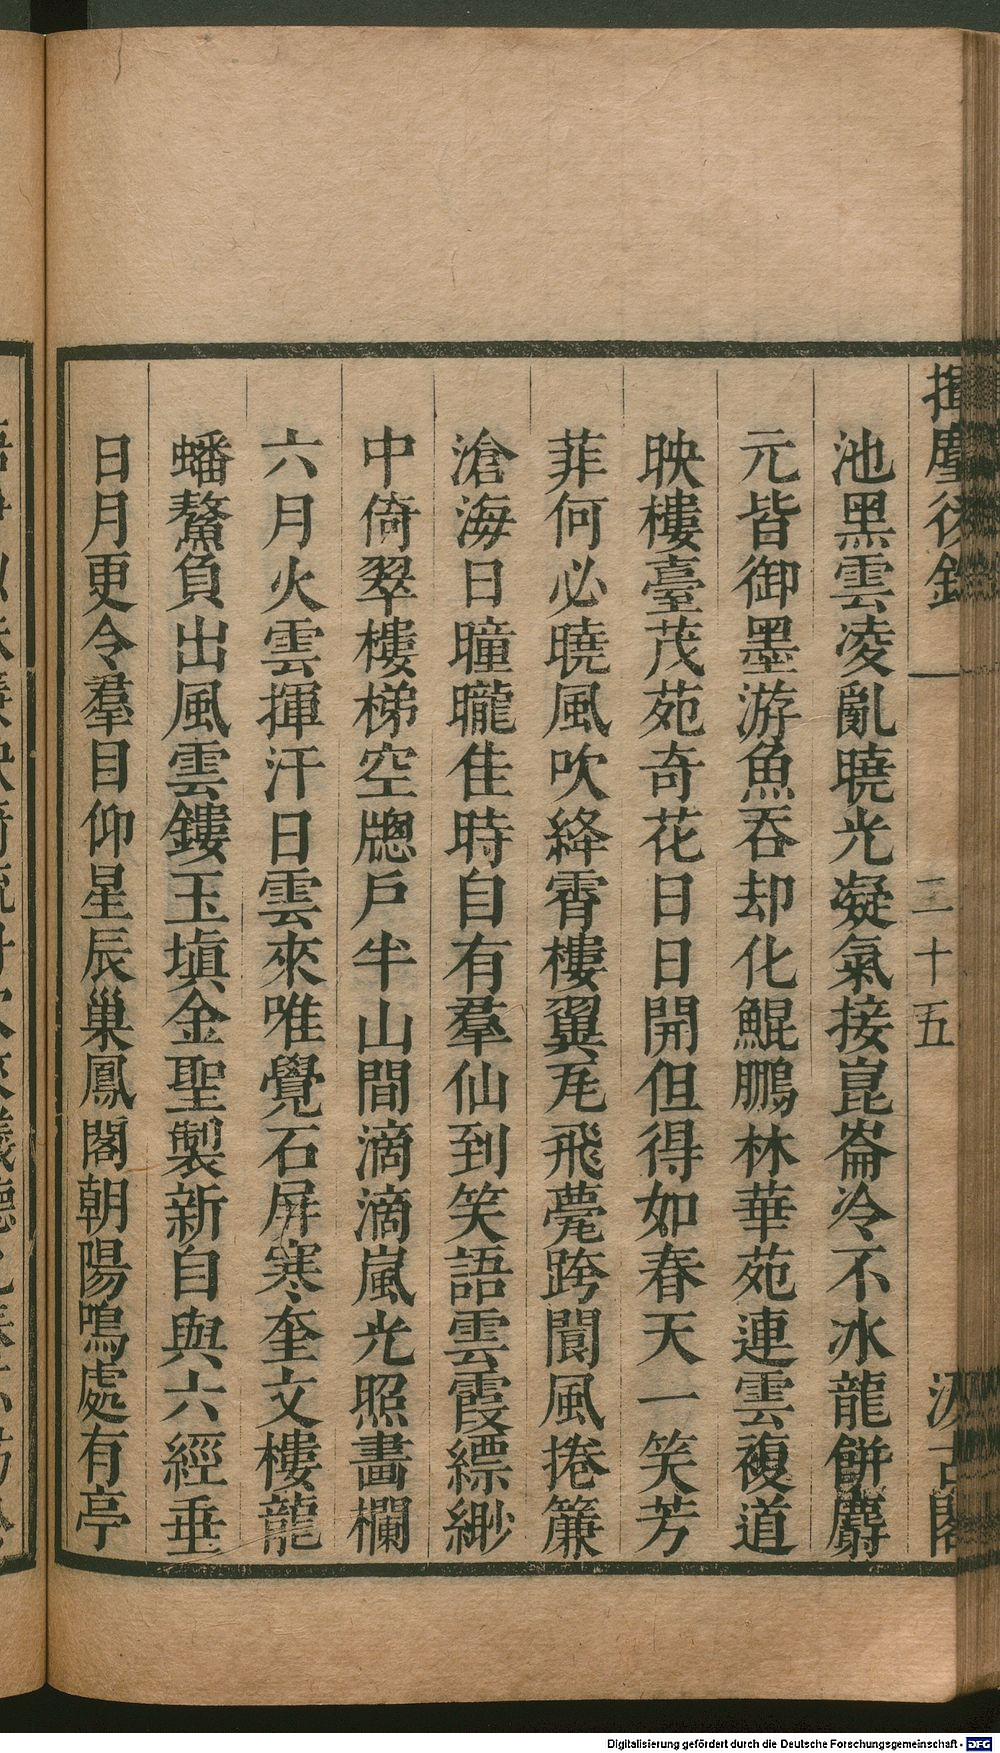 揮麈後錄
二十五
汲古閣
池黑雲凌亂曉光凝氣接崑崙冷不冰龍餅麝
元皆御墨游魚吞却化鯤鵬林華苑連雲複道
映樓臺茂苑奇花日日開但得如春天一笑芳
菲何必曉風吹絳霄樓翼瓦飛甍跨閬風捲簾
滄海日曈曨佳時自有羣仙到笑語雲霞縹緲
中倚翠樓梯空牕戶半山間滴滴嵐光照畫欄
六月火雲揮汗日雲來唯覺石屏寒奎文樓龍
蟠鰲負出風雲鏤玉塡金聖製新自與六經垂
日月更令羣目仰星辰巢鳳閣朝陽鳴處有亭
Digitalisierung gefördert durch die Deutsche Forschungsgemeinschaft - DFG